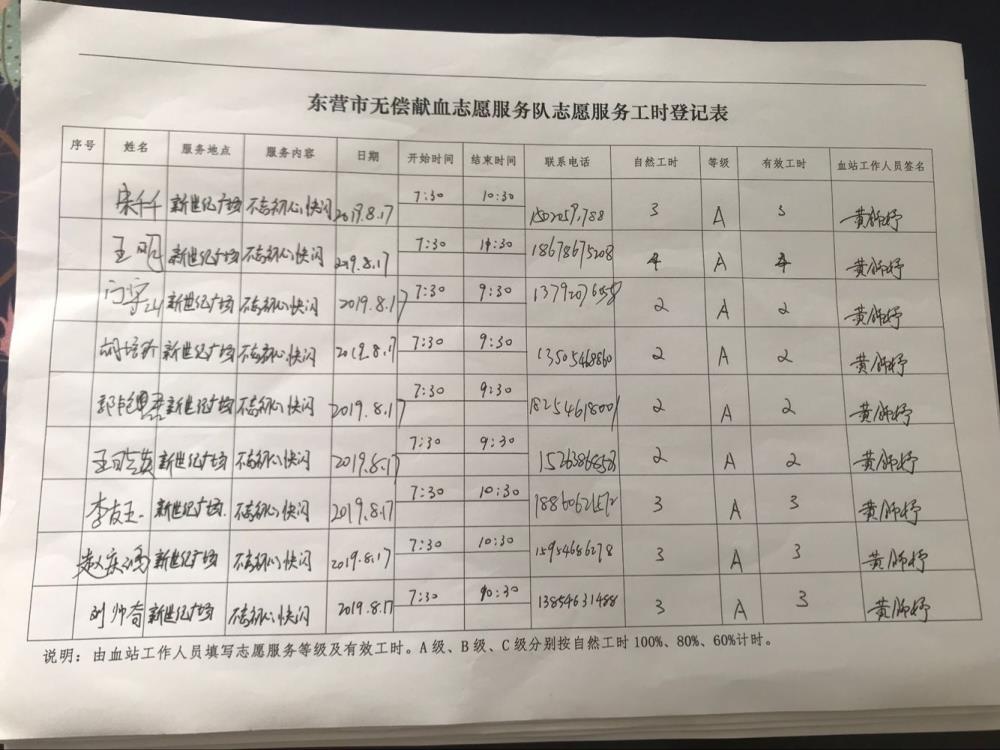 东营市无偿献血志愿服务队志愿服务工时登记表
序号 姓名 服务地点 服务内容 日期 开始时间 结束时间 联系电话 自然工时 等级 有效工时 血站工作人员签名
宋千千 新世纪广场 不忘初心快闪 2019.8.17 7:30 10:30 3 A 3 黄帅妤
王明 新世纪广场 不忘初心快闪 2019.8.17 7:30 11:30 18678675208 4 A 4 黄帅妤
门守山 新世纪广场 不忘初心快闪 2019.8.17 7:30 9:30 2 A 2 黄帅妤
胡培新 新世纪广场 不忘初心快闪 2019.8.17 7:30 9:30 13505468860 2 A 2 黄帅妤
新世纪广场 不忘初心快闪 2019.8.17 7:30 9:30 18254618001 2 A 2 黄帅妤
新世纪广场 不忘初心快闪 2019.8.17 7:30 9:30 2 A 2 黄帅妤
李友玉 新世纪广场 不忘初心快闪 2019.8.17 7:30 10:30 3 A 3 黄帅妤
赵庆鸿 新世纪广场 不忘初心快闪 2019.8.17 7:30 10:30 15954686278 3 A 3 黄帅妤
刘帅奇 新世纪广场 不忘初心快闪 2019.8.17 7:30 10:30 13854631488 3 A 3 黄帅妤
说明：由血站工作人员填写志愿服务等级及有效工时。A级、B级、C级分别按自然工时100%、80%、60%计时。